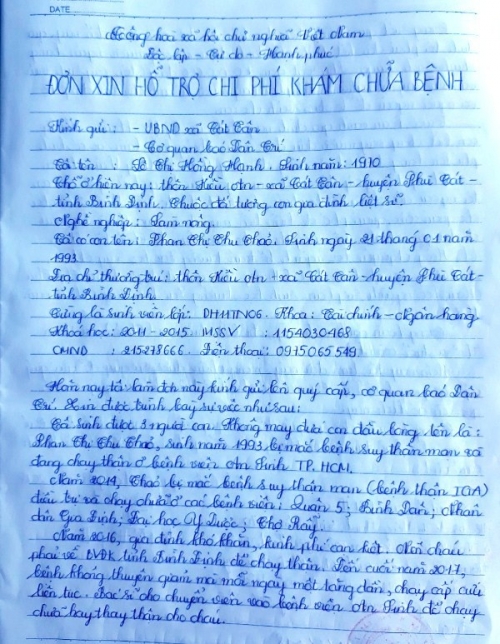 DATE
Cộng hòa xã hội chủ nghĩa Việt Nam
Độc lập - Tự do - Hạnh phúc
ĐƠN XIN HỖ TRỢ CHI PHÍ KHÁM CHỮA BỆNH
Kính gửi: - UBND xã Cát Tân
- Cơ quan báo Dân Trí
Tôi tên : Lê Thị Hồng Hạnh. Sinh năm: 1970
Chỗ ở hiện nay: thôn Kiều An - xã Cát Tân - huyện Phù Cát -
tỉnh Bình Định. Thuộc đối tượng con gia đình liệt sĩ.
Nghề nghiệp: Làm nông.
Tôi có con tên: Phan Thị Thu Thảo, Sinh ngày 21 tháng 01 năm
1993
Địa chỉ thường trú: thôn Kiều An - xã Cát Tân - huyện Phù Cát -
tỉnh Bình Định.
Từng là sinh viên lớp: DH11TN06. Khoa: Tài chính - Ngân hàng
Khoá học: 2011 - 2015 MSSV : 1154030468
CMND : 215278666. Điện thoại: 0975065549
Hôm nay tôi làm đơn này kính gửi lên quý cấp, cơ quan báo Dân
Trí. Xin được trình bày sự việc như sau:
Tôi sinh được 3 người con. Không may đứa con đầu lòng tên là:
Phan Thị Thu Thảo, sinh năm 1993 bị mắc bệnh suy thận mạn và
đang chạy thận ở bệnh viện An Sinh TP. HCM.
Năm 2014, Thảo bị mắc bệnh suy thận mạn (bệnh thận IGA)
điều trị và chạy chữa ở các bệnh viện: Quận 5; Bình Dân; Nhân
dân Gia Định; Đại học Y Dược; Chợ Rẫy.
Năm 2016, gia đình khó khăn, kinh phí cạn kiệt. Nên cháu
phải về BVĐK tỉnh Bình Định để chạy thận. Đến cuối năm 2017,
bệnh không thuyên giảm mà mỗi ngày một tăng dần, chạy cấp cứu
liên tục. Bác sĩ cho chuyển viện vào bệnh viện An Sinh để chạy
chữa hay thay thận cho cháu.